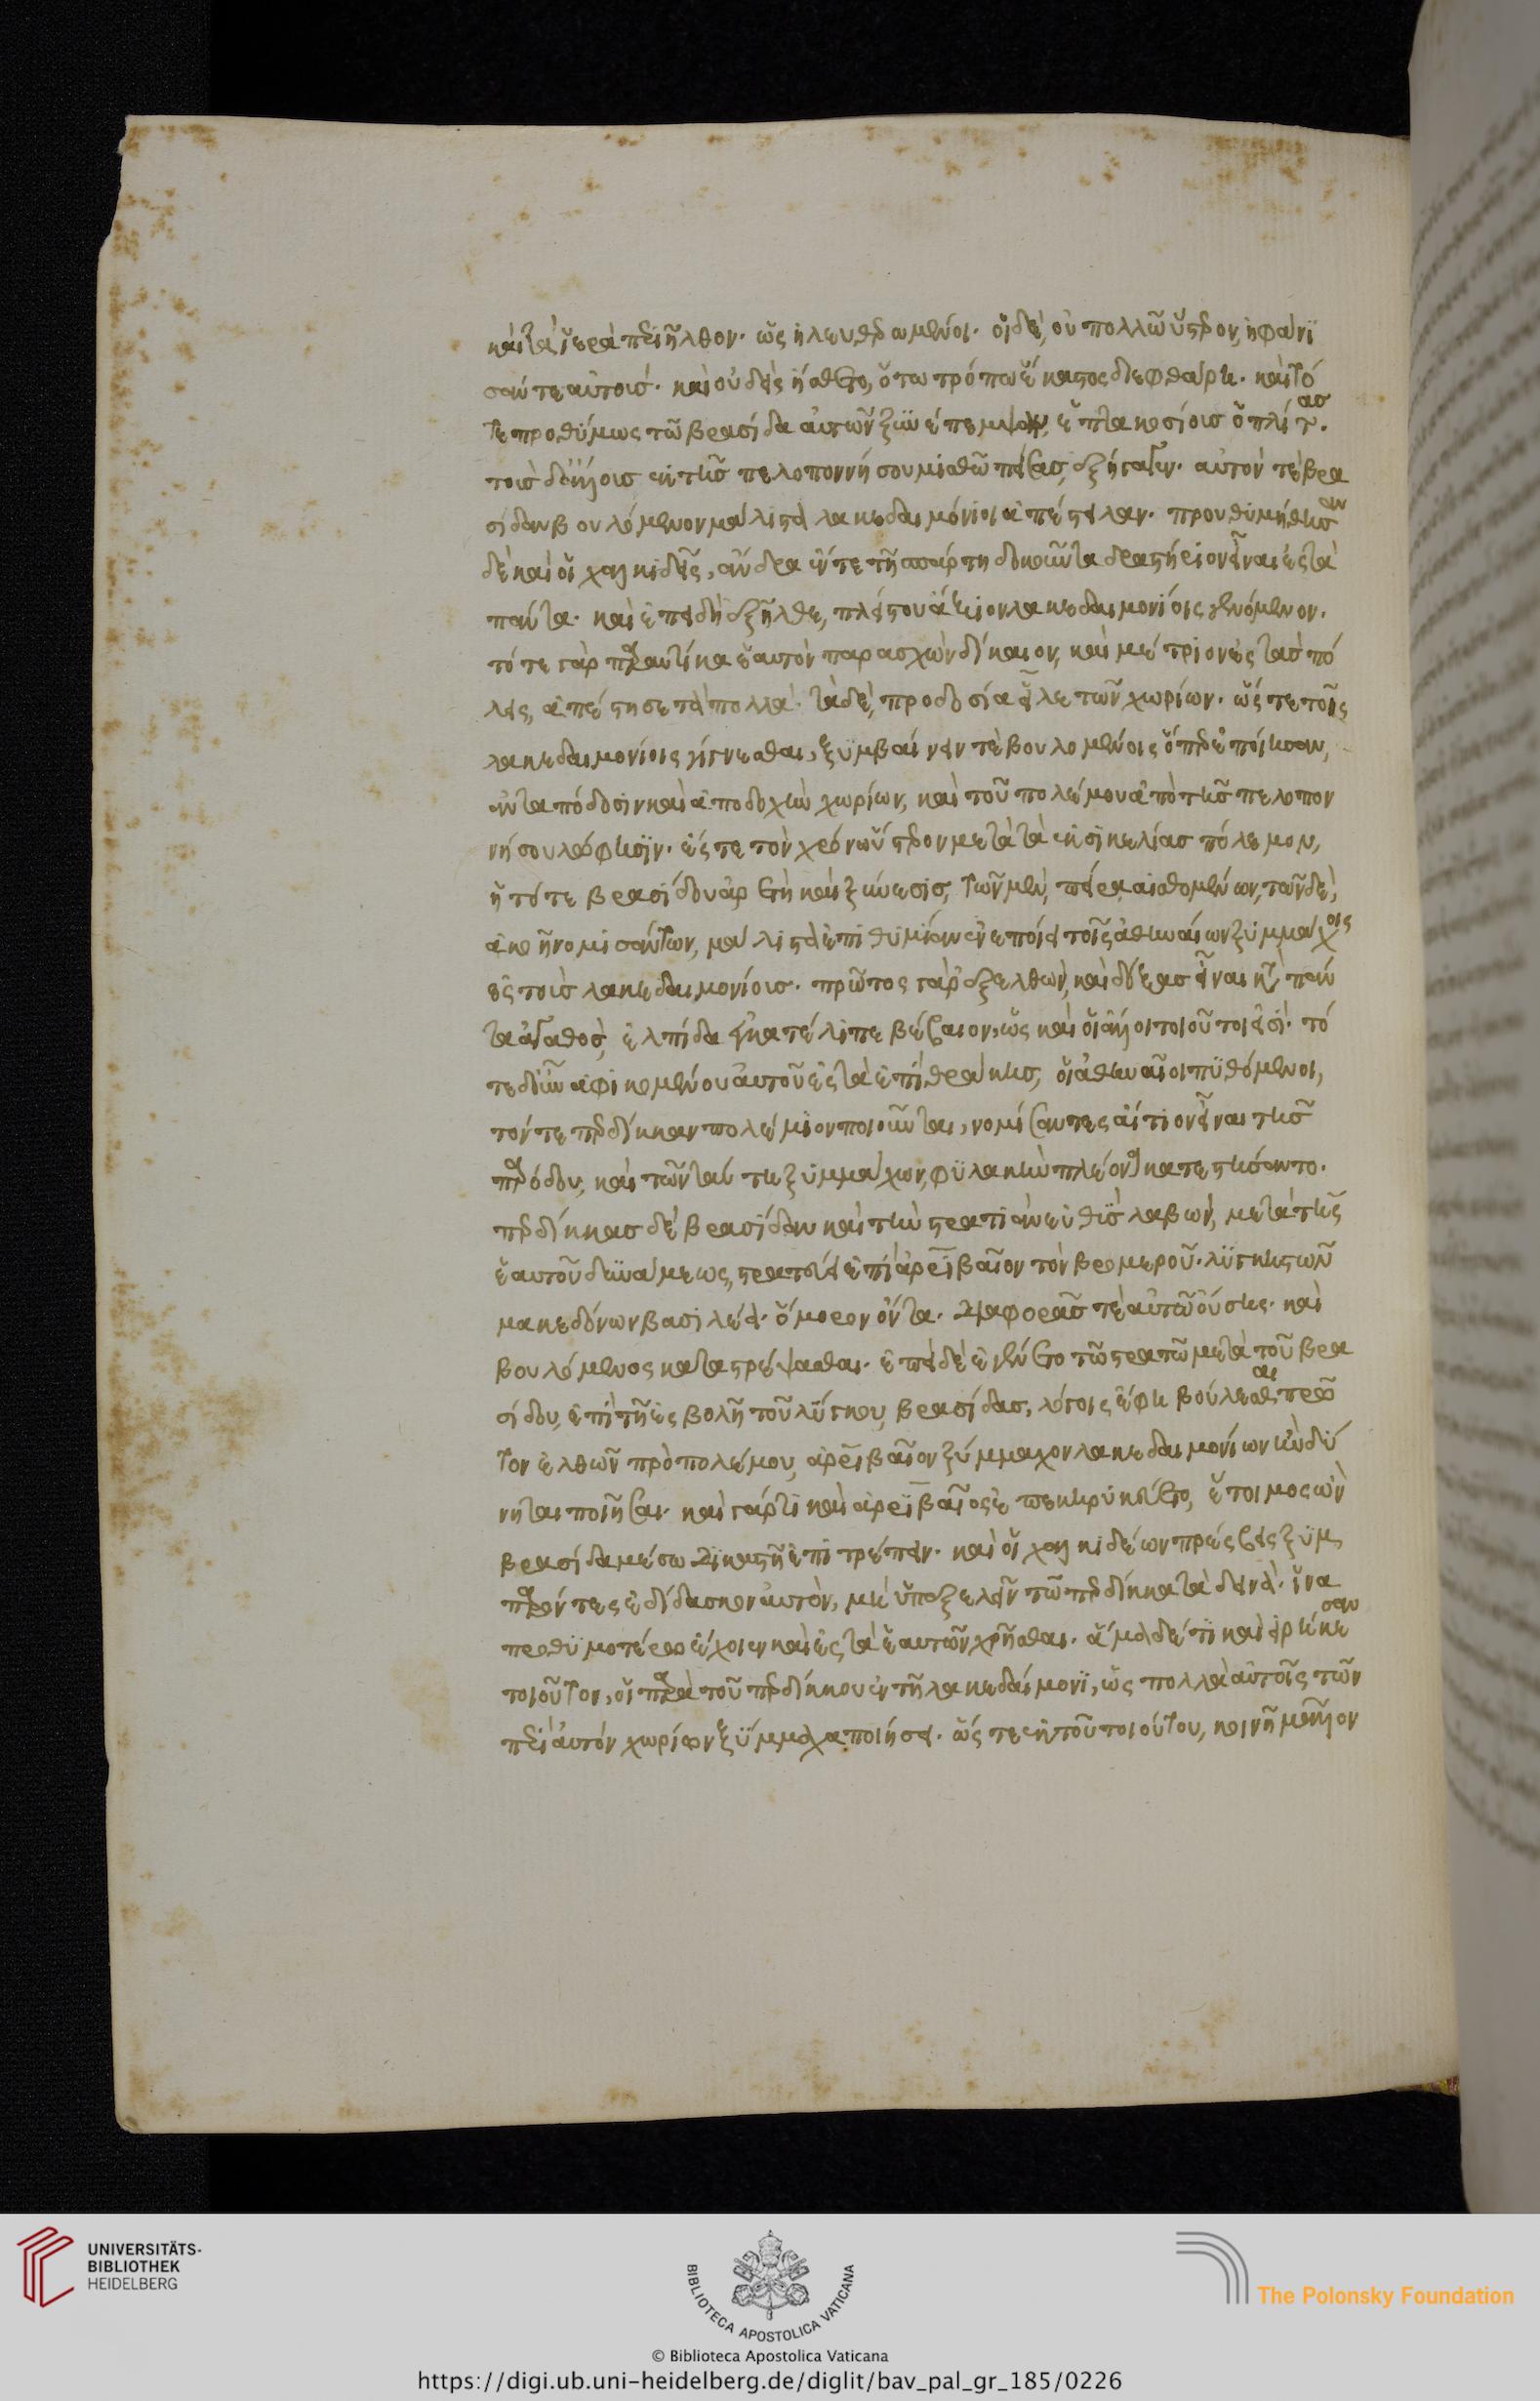 καὶ τὰ ἱερὰ περιῆλθον· ὡς ἠλευθερωμένοι· οἱ δὲ, οὐ πολλῶ ὕστερον, ἠφάνι
σάν τε αὐτοὺσ· καὶ οὐδεὶς ἤσθετο, ὅτω τρόπω ἕκαστος διεφθάρη· καὶ τό
τε προθύμως τῶ βρασίδα αὐτῶν ξυνέπεμψαν, ἑπτακοσίους ὁπλίτας.
τοὺσ δ' ἄλλους ἐκ τῆσ πελοποννήσου μισθῶ πείσας, ἐξήγαγεν· αὐτόν τε βρα
σίδαν βουλόμενον μάλιστα λακεδαιμόνιοι ἀπέστειλαν· προυθυμήθησαν
δὲ καὶ οἱ χαλκιδεῖς, ἄνδρα ἔν τε τῆ σπάρτη δοκοῦντα δραστήριον εἶναι ἐς τὰ
πάντα· καὶ ἐπειδὴ ἐξῆλθε, πλείστου ἄξιον λακεδαιμονίοις γενόμενον.
τό τε γὰρ παραυτίκα ἑαυτὸν παρασχὼν δίκαιον, καὶ μέτριον ἐς τὰσ πό
λεις, ἀπέστησε τὰ πολλά· τὰ δὲ, προδοσία εἷλε τῶν χωρίων· ὥστε τοῖς
λακεδαιμονίοις γίγνεσθαι, ξυμβαίνειν τὲ βουλομένοις ὅπερ ἐποίησαν,
ἀνταπόδοσιν καὶ ἀποδοχὴν χωρίων, καὶ τοῦ πολέμου ἀπὸ τῆσ πελοπον
νήσου λώφησιν· ἔς τε τὸν χρόνω ὕστερον μετὰ τὰ ἐκ σικελίας πόλεμον,
ἡ τότε βρασίδου ἀρετὴ καὶ ξύνεσισ, τῶν μὲν, πείρα αἰσθομένων, τῶν δὲ,
ἀκοῆ νομισάντων, μάλιστα ἐπιθυμίαν ἐνεποίει τοῖς ἀθηναίων ξυμμάχοις
ἐς τοὺσ λακεδαιμονίουσ· πρῶτος γὰρ ἐξελθὼν, καὶ δόξασ εἶναι κατὰ πάν
τα ἀγαθὸς, ἐλπίδα ἐγκατέλιπε βέβαιον, ὡς καὶ οἱ ἄλλοι τοιοῦτοι εἰσί· τό
τε δ' οὖν ἀφικομένου αὐτοῦ ἐς τὰ ἐπὶ θράκης, οἱ ἀθηναῖοι πυθόμενοι,
τόν τε περδίκκαν πολέμιον ποιοῦνται, νομίσαντες αἴτιον εἶναι τῆσ
παρόδου, καὶ τῶν ταύτη ξυμμάχων, φυλακὴν πλέονα κατεστήσαντο.
περδίκκασ δὲ βρασίδαν καὶ τὴν στρατιὰν εὐθὺσ λαβὼν, μετὰ τῆς
ἑαυτοῦ δυνάμεως, στρατεύει ἐπὶ ἀρριβαῖον τὸν βρομεροῦ· λυγκηστῶν
μακεδόνων βασιλέα· ὅμορον ὄντα· διαφορᾶσ τὲ αὐτῶ οὔσης· καὶ
βουλόμενος καταστρέψασθαι· ἐπεὶ δὲ ἐγένετο τῶ στρατῶ μετὰ τοῦ βρα
σίδου, ἐπὶ τῆ ἐς βολῆ τοῦ λύγκου, βρασίδασ, λόγοις ἔφη βούλεσθαι πρῶ
τον ἐλθὼν πρὸ πολέμου, ἀρριβαῖον ξύμμαχον λακεδαιμονίων ἢν δύ
νηται ποιῆσαι· καὶ γάρ τι καὶ ἀρριβαῖος ἐπεκηρυκεύετο, ἕτοιμος ὢν
βρασίδα μέσω δικαστῆ ἐπιτρέπειν· καὶ οἱ χαλκιδέων πρέσβεις ξυμ
παρόντες ἐδίδασκον αὐτὸν, μὴ ὑπεξελεῖν τῶ περδίκκα τὰ δεινά· ἵνα
προθυμοτέρω ἔχοιεν καὶ ἐς τὰ ἑαυτῶν χρῆσθαι· ἅμα δέ τι καὶ εἰρήκεσαν
τοιοῦτον, οἱ παρὰ τοῦ περδίκκου ἐν τῆ λακεδαίμονι, ὡς πολλὰ αὐτοῖς τῶν
περὶ αὐτὸν χωρίων ξύμμαχα ποιήσει· ὥς τε ἐκ τοῦ τοιούτου, κοινῆ μᾶλλον
UNIVERSITÄTS-
BIBLIOTHEK
HEIDELBERG
BIBLIOTECA APOSTOLICA VATICANA
The Polonsky Foundation
© Biblioteca Apostolica Vaticana
https://digi.ub.uni-heidelberg.de/diglit/bav_pal_gr_185/0226